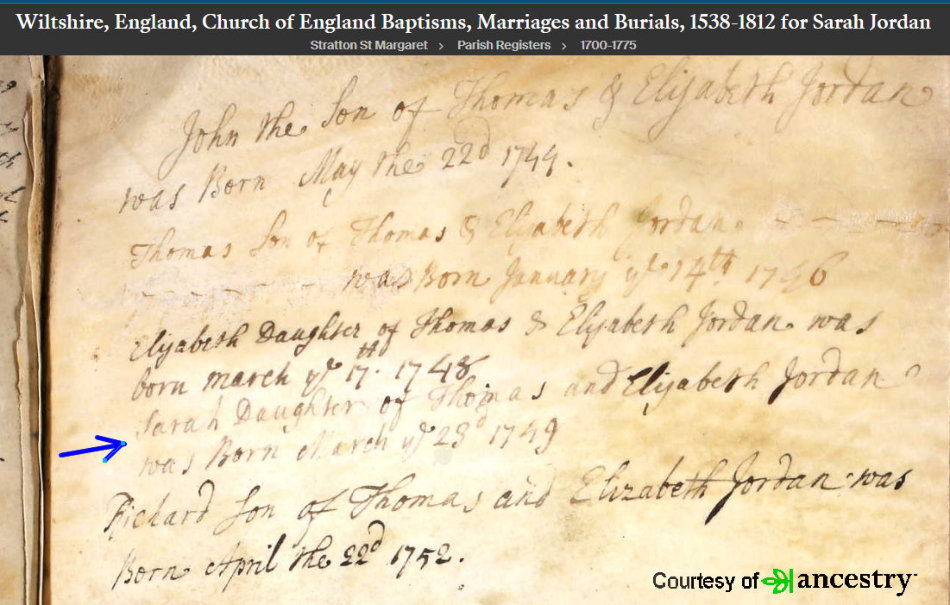 Wiltshire, England, Church of England Baptisms, Marriages and Burials, 1538-1812 for Sarah Jordan
Stratton St Margaret > Parish Registers > 1700-1775
John the Son of Thomas & Elijabeth Jordan
was Born May the 22d 1744.
Thomas Son of Thomas & Elijabeth Jordan.
was Born January ye 14th 1746
Elijabeth Daughter of Thomas & Elijabeth Jordan was
born march ye 17th. 1748
Sarah Daughter of Thomas and Elijabeth Jordan
was Born March ye 23d 1749
Richard Son of Thomas and Elizabeth Jordan was
Born April the 22d 1752.
Courtesy of ancestry